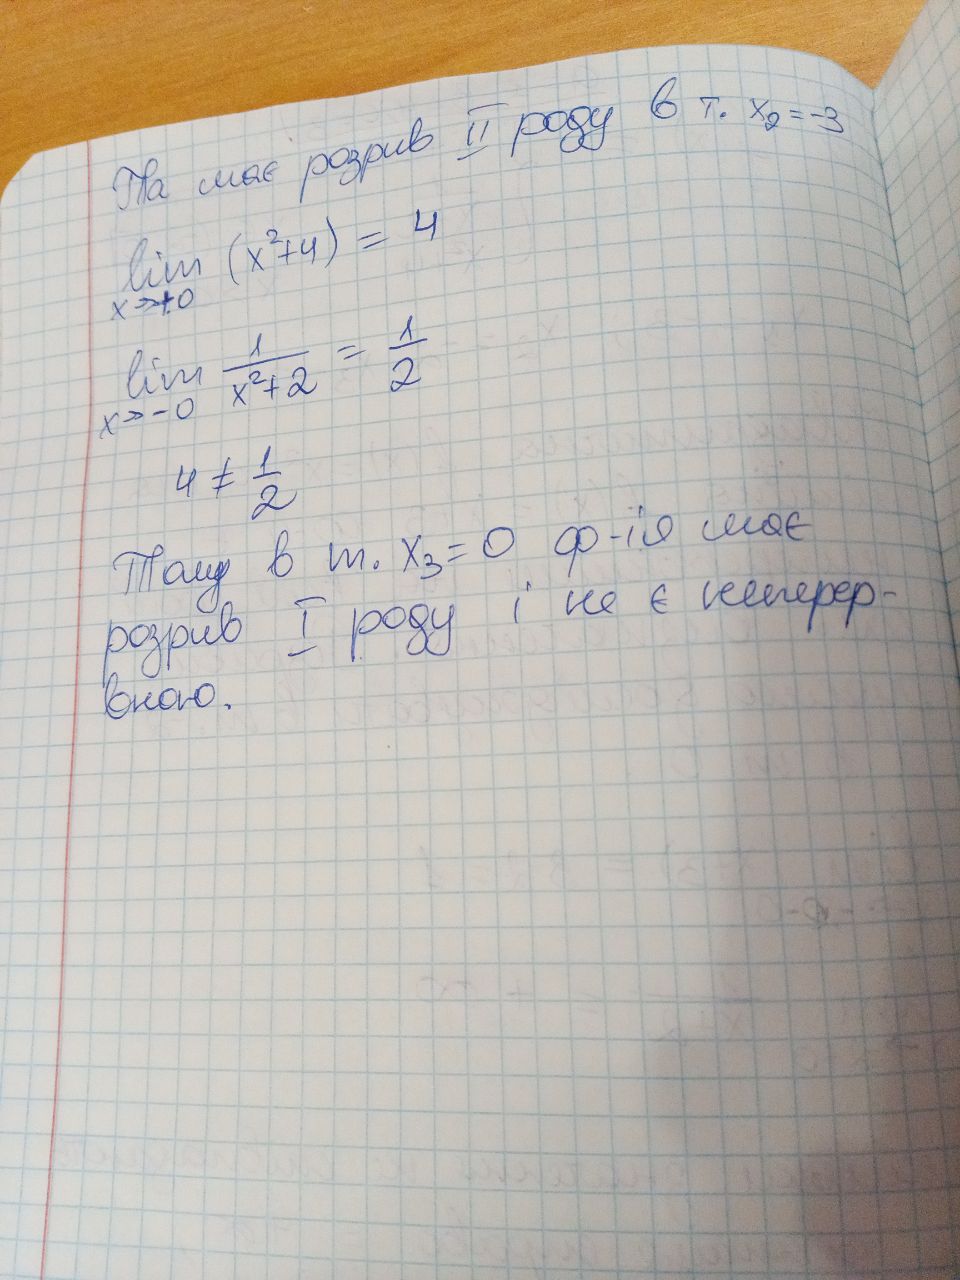 Та має розрив II роду в т. x₂ = -3
lim (x²+4) = 4
x→+0
lim 1/(x²+2) = 1/2
x→-0
4 ≠ 1/2
Тому в т. x₃ = 0 ф-ія має
розрив I роду і не є неперер-
вною.